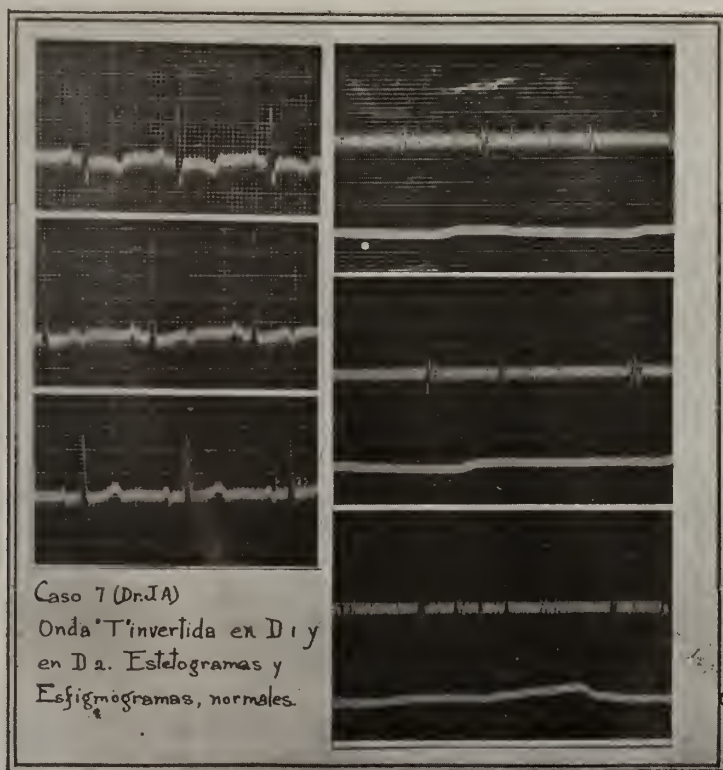 Caso 7 (Dr.JA)
Onda "T" invertida en D 1 y
en D 2. Estetogramas y
Esfigmogramas, normales.